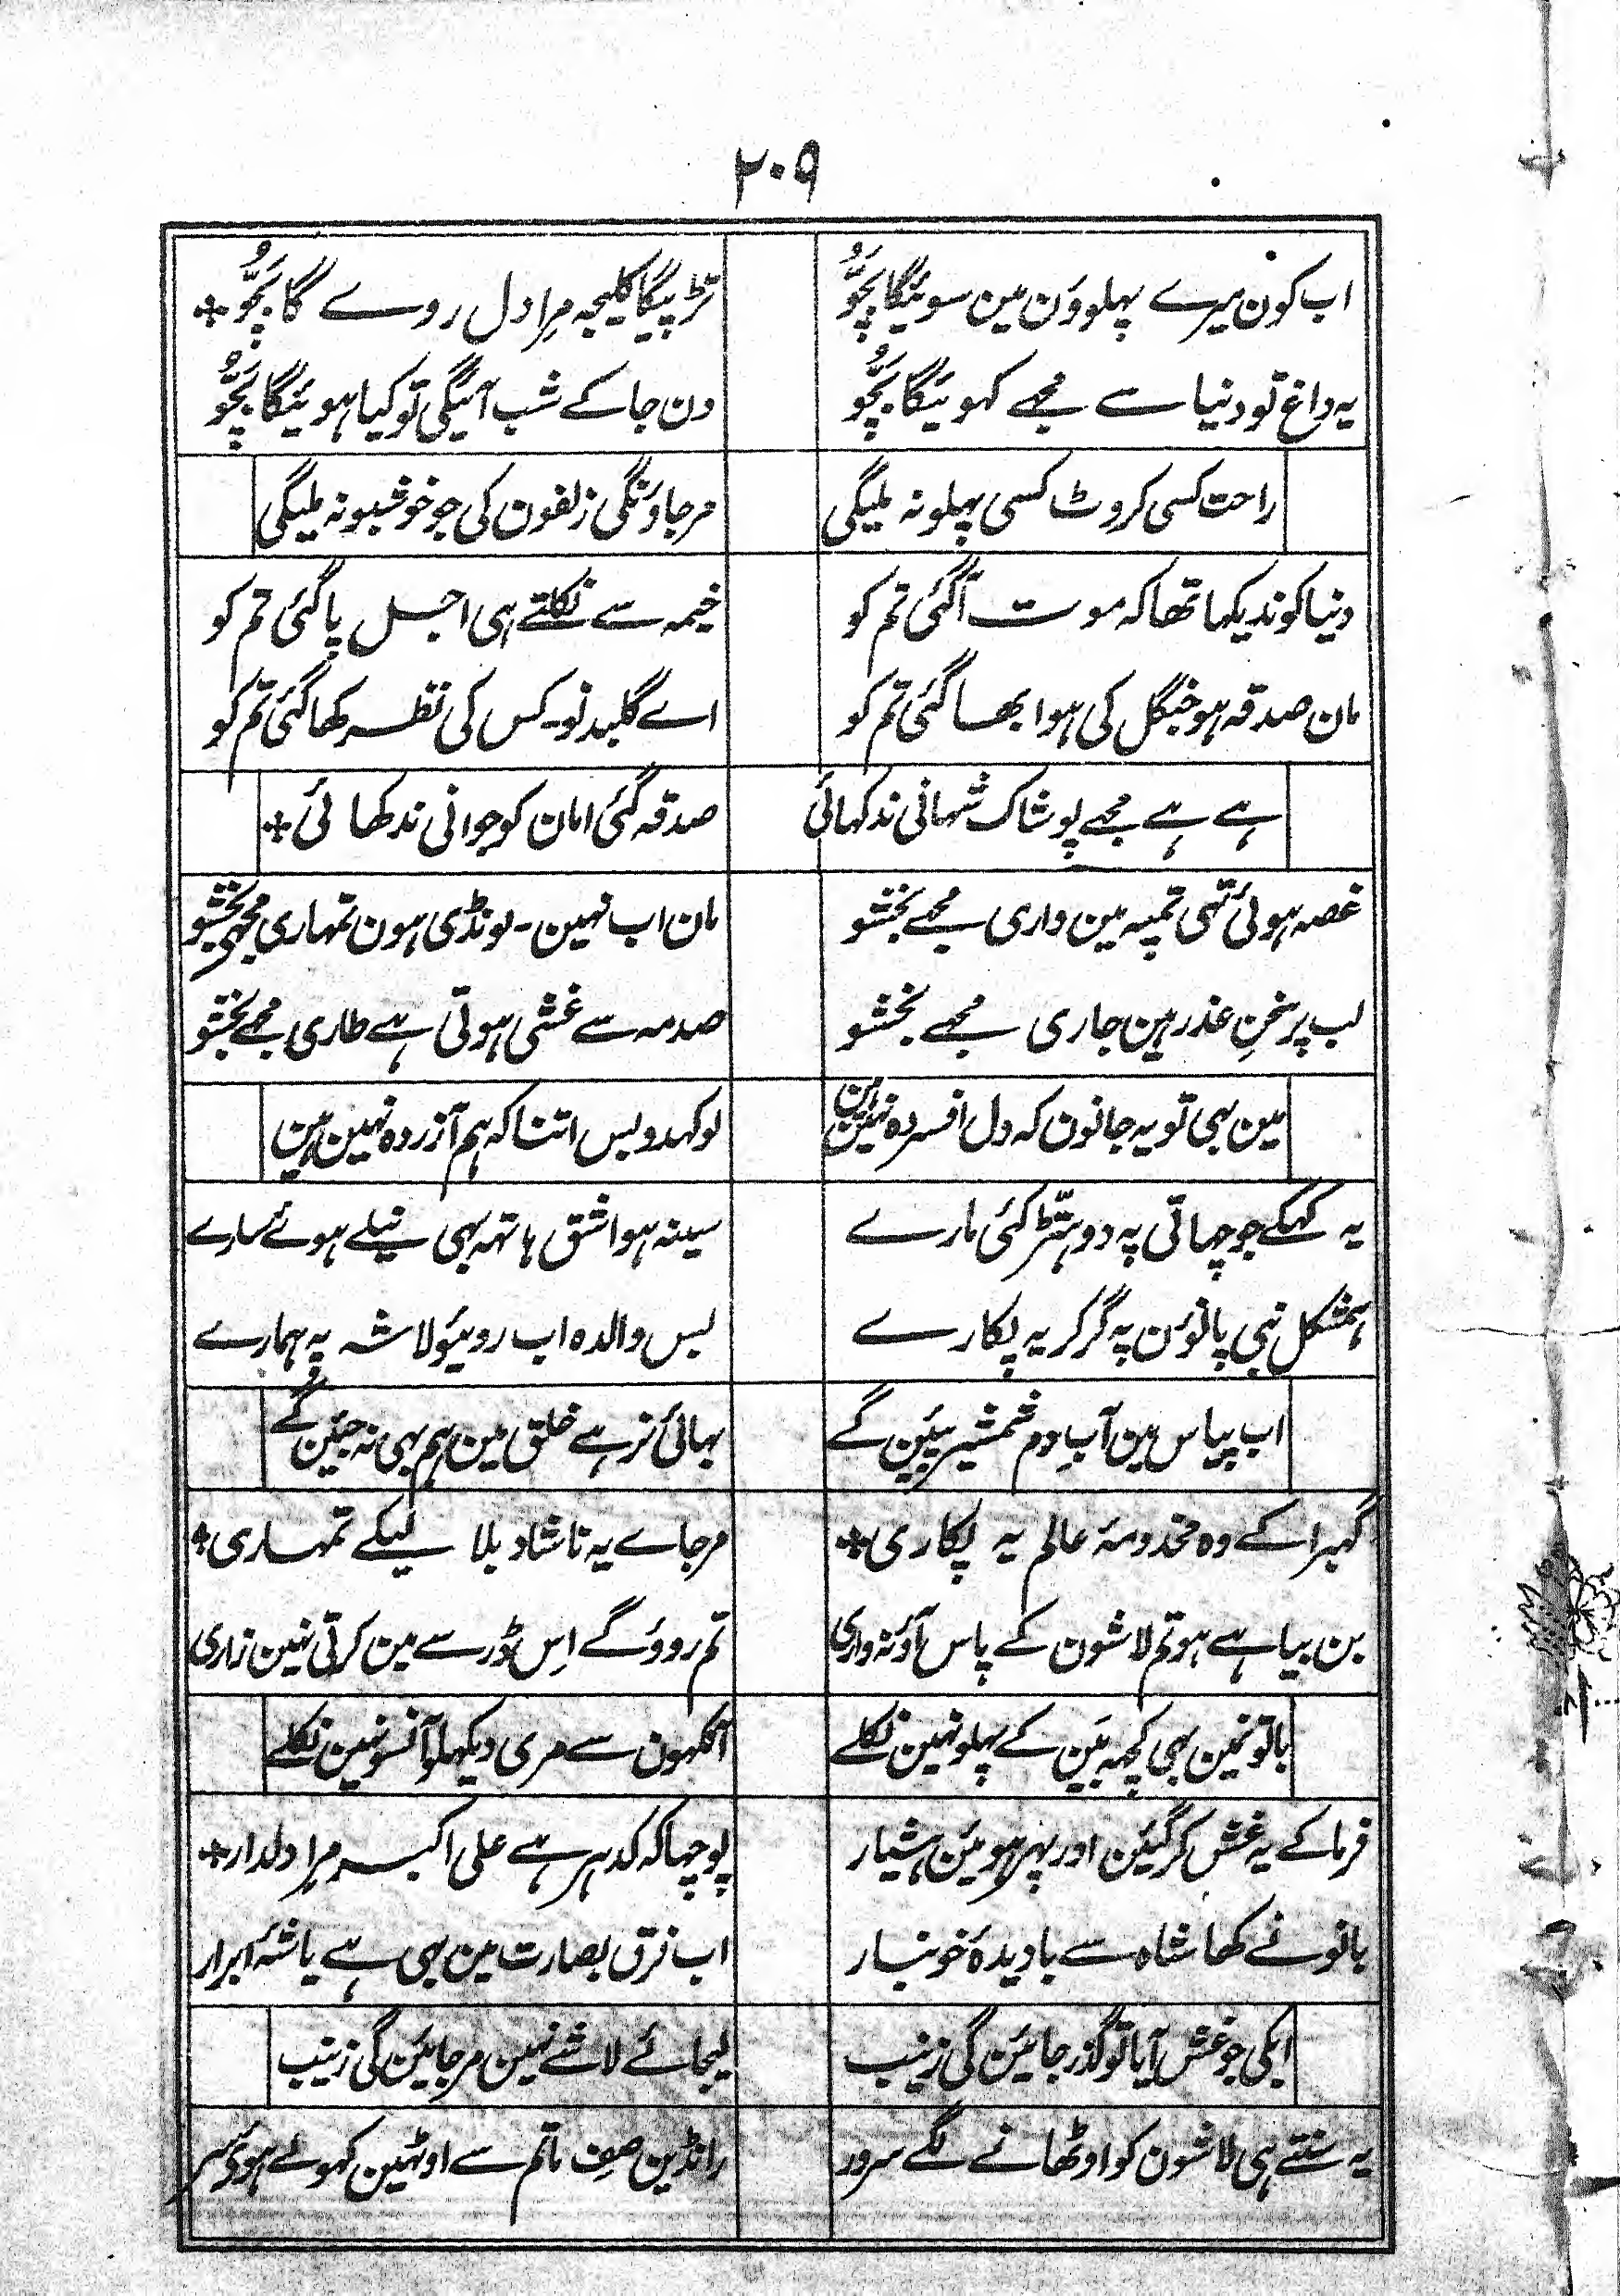 ۲۰۹
اب کون میرے پہلوؤن مین سوئیگا بچّو
تڑپیگا کلیجہ مِرا دل روے گا بچّو
یہ داغ تو دنیا سے مجھے کہوئیگا بچّو
دن جا کے شب آئیگی تو کیا ہوئیگا بچّو
راحت کسی کروٹ کسی پہلو نہ ملیگی
مرجاؤنگی زلفون کی جو خوشبو نہ ملیگی
دنیا کو ندیکہا تھا کہ موت آگئی تم کو
خیمہ سے نکلتے ہی اجل پاگئی تم کو
مان صدقہ ہو جنگل کی ہوا بھاگئی تم کو
اے گلبدنو۔ کس کی نظر کھاگئی تم کو
ہے ہے مجھے پوشاک شہانی ندکہائی
صدقہ گئی امان کو جوانی ندکھائی
غصہ ہوئی تہی تمپہ مین واری مجھے بخشو
مان اب نہین۔ لونڈی ہون تمہاری مجھے بخشو
لب پر سخنِ عذر ہین جاری مجھے بخشو
صدمہ سے غشی ہوتی ہے طاری مجھے بخشو
مین بہی تو یہ جانون کہ دل افسردہ نہین ہین
لو کہدو بس اتنا کہ ہم آزردہ نہین ہین
یہ کہکے جو چہاتی پہ دوہتّڑ کئی مارے
سینہ ہوا شق ہاتہہ بہی نیلے ہوئے سارے
ہمشکل نبی پانوؤن پہ گر کر یہ پکارے
بس والدہ اب روئیو لاشہ پہ ہمارے
اب پیاس مین آبِ دم شمشیر پئین گے
بہائی نرہے خلق مین ہم بہی نہ جئین گے
گہبرا کے وہ مخدومۂ عالم یہ پکاری
مرجاے یہ ناشاد بلا لیکے تمہاری
بن بیاہے ہو تم لاشون کے پاس آؤ نہ واری
تم روؤگے اِس ڈور سے مین کرتی نہین زاری
باتونمین بہی کچہہ بَین کے پہلو نہین نکلے
آنکہون سے مری دیکہلو آنسو نہین نکلے
فرما کے یہ غش کر گئین اور پہر ہوئین ہشیار
پوچہا کہ کدہر ہے علی اکبر مِرا دلدار
بانو نے کھا شاہ سے بادیدۂ خونبار
اب فرق بصارت مین بہی ہے یا شہ ابرار
ابکی جو غش آیا تو گذر جائین گی زینب
لیجائے لاشے نہین مرجائین گی زینب
یہ سنتے ہی لاشون کو اوٹھانے لگے سرور
رانڈین صفِ ماتم سے اوٹہین کہولے ہوئے سر